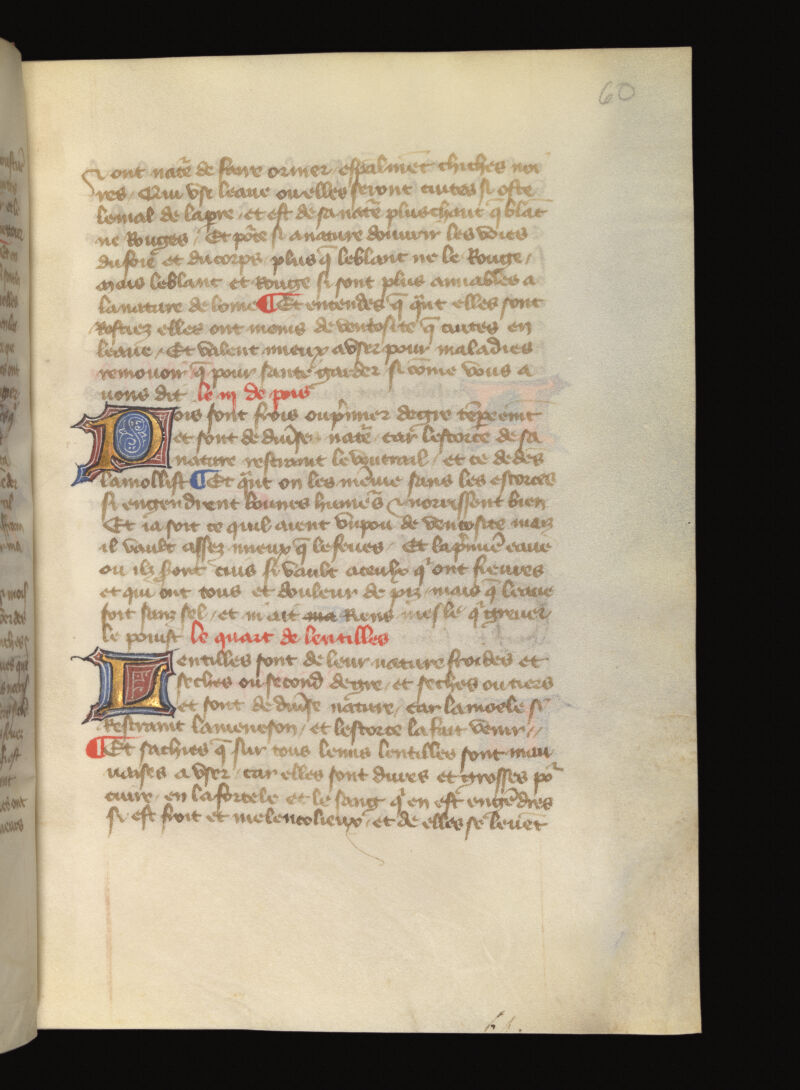 60
⁊ ont nat̃e de faire oriner / esp̃alment chiches noi
res / Qui vse leaue ou elles seront cuites si oste
le mal de lapre / et est de sa nat̃e plus chaut q̃ blãt
ne Rouges / Et põte si a nature douurir les voies
du foie et du corps plus q̃ le blant ne le Rouge /
mais le blant et Rouge si sont plus amiables a
la nature de lome ¶ Et entendes q̃ q̃nt elles sont
Rosties elles ont moins de ventosite q̃ cuites en
leaue / Et valent mieux a vser pour maladies
remouoir q̃ pour sante garder si cõme vous a
uons dit le iii de pois
Pois sont frois ou p̃mier degre tẽpreemt
et sont de diuĩse nat̃e car lescorce de sa
nature restraint le ventrail / et ce dedẽs
lamollist ¶ Et q̃nt on les mẽiue sans les escorces
si engendrent bonnes humẽs ⁊ norrissent bien
Et ia soit ce quil aient vn pou de ventosite mais
il vault assez mieux q̃ le feues / Et la p̃miẽ eaue
ou ilz s̃ont cuis si vault a ceulx q̃ ont fieures
et qui ont tous et douleur de piz mais q̃ leaue
soit sanz sel / et ni ait Riens mesle q̃ greuer
le puist le quart de lentilles
Lentilles sont de leur nature froides et
seches ou second degre / et seches ou tiers
et sont de diuĩse nature / car la moele si
Restraint la meneson / et lescorce la fait venir //
¶ Et sachies q̃ sur tous leuns lentilles sont mau
uaises a vser / car elles sont dures et grosses po᷑
cuire / en la forcele et le sang q̃ en est engẽdres
si est froit et melencolieux / et de elles se leuẽt